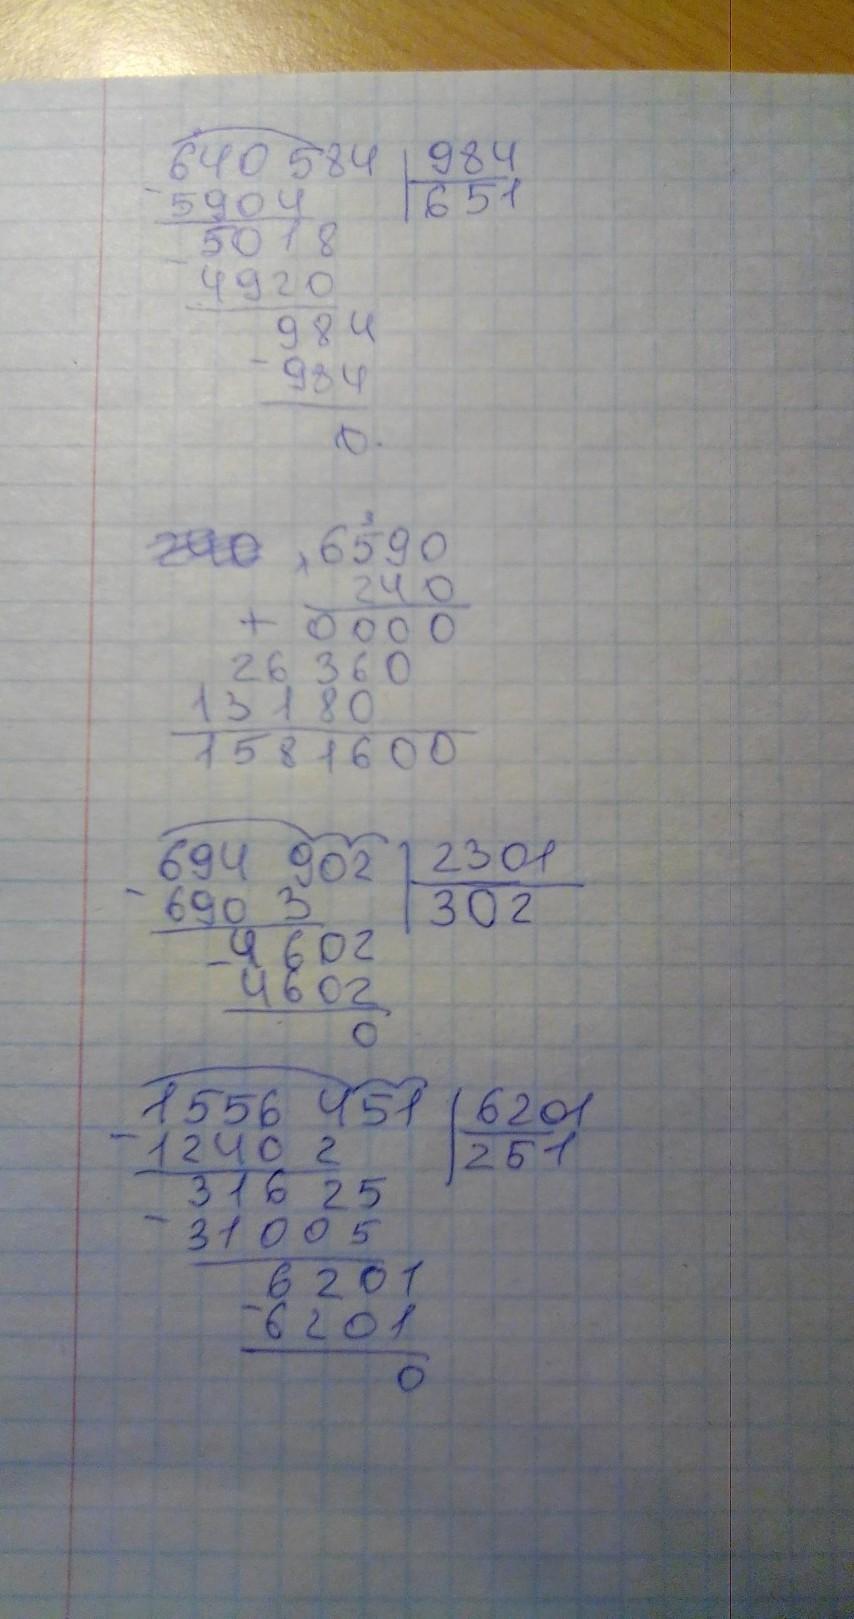 640 584 | 984
- 5904 | 651
5018
- 4920
984
- 984
0.
3
× 6590
240
+ 0000
26360
13180
1581600
694 902 | 2301
- 690 3 | 302
- 4602
4602
0
1556 451 | 6201
- 1240 2 | 251
316 25
- 31005
6201
- 6201
0